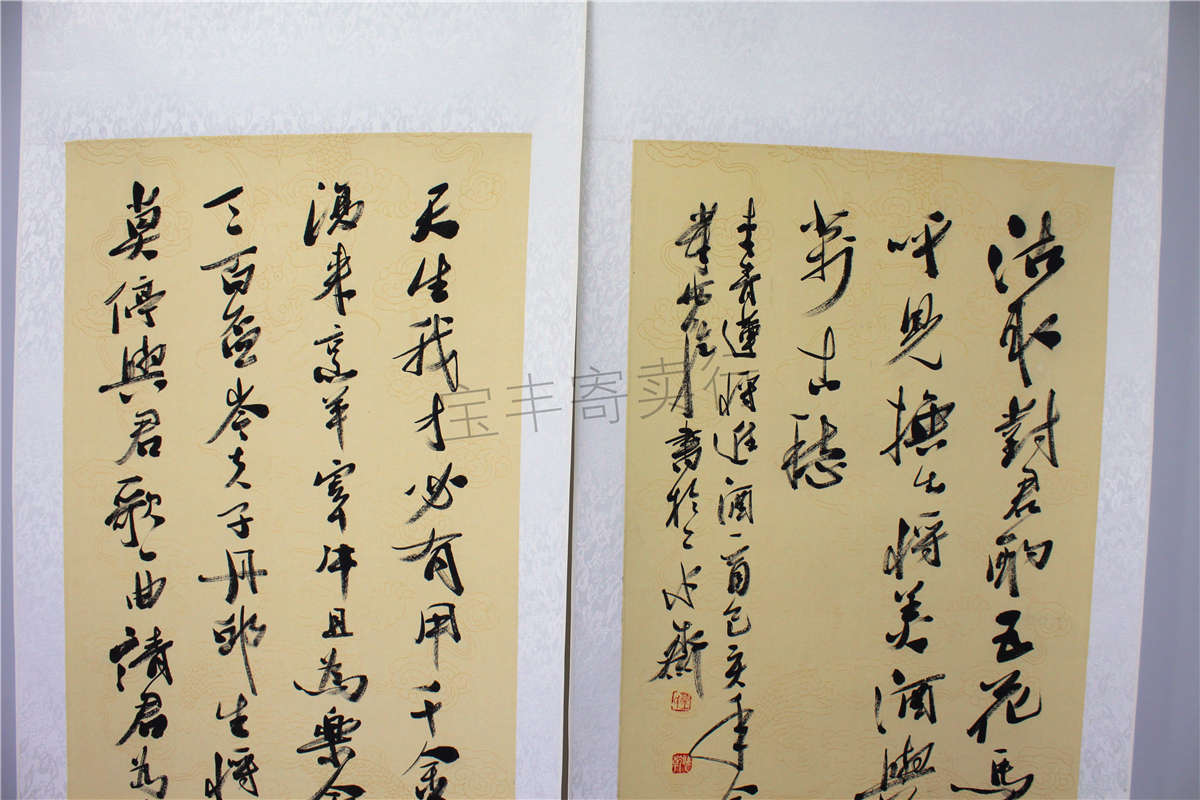 天生我才必有用千金
復来烹羊宰牛且為樂會
三百盃岑夫子丹邱生將
莫停與君歌一曲請君為
沽取對君酌五花馬
呼児換出將美酒與
萬古愁
李青蓮將進酒一首己亥年
書於
宝丰寄卖行